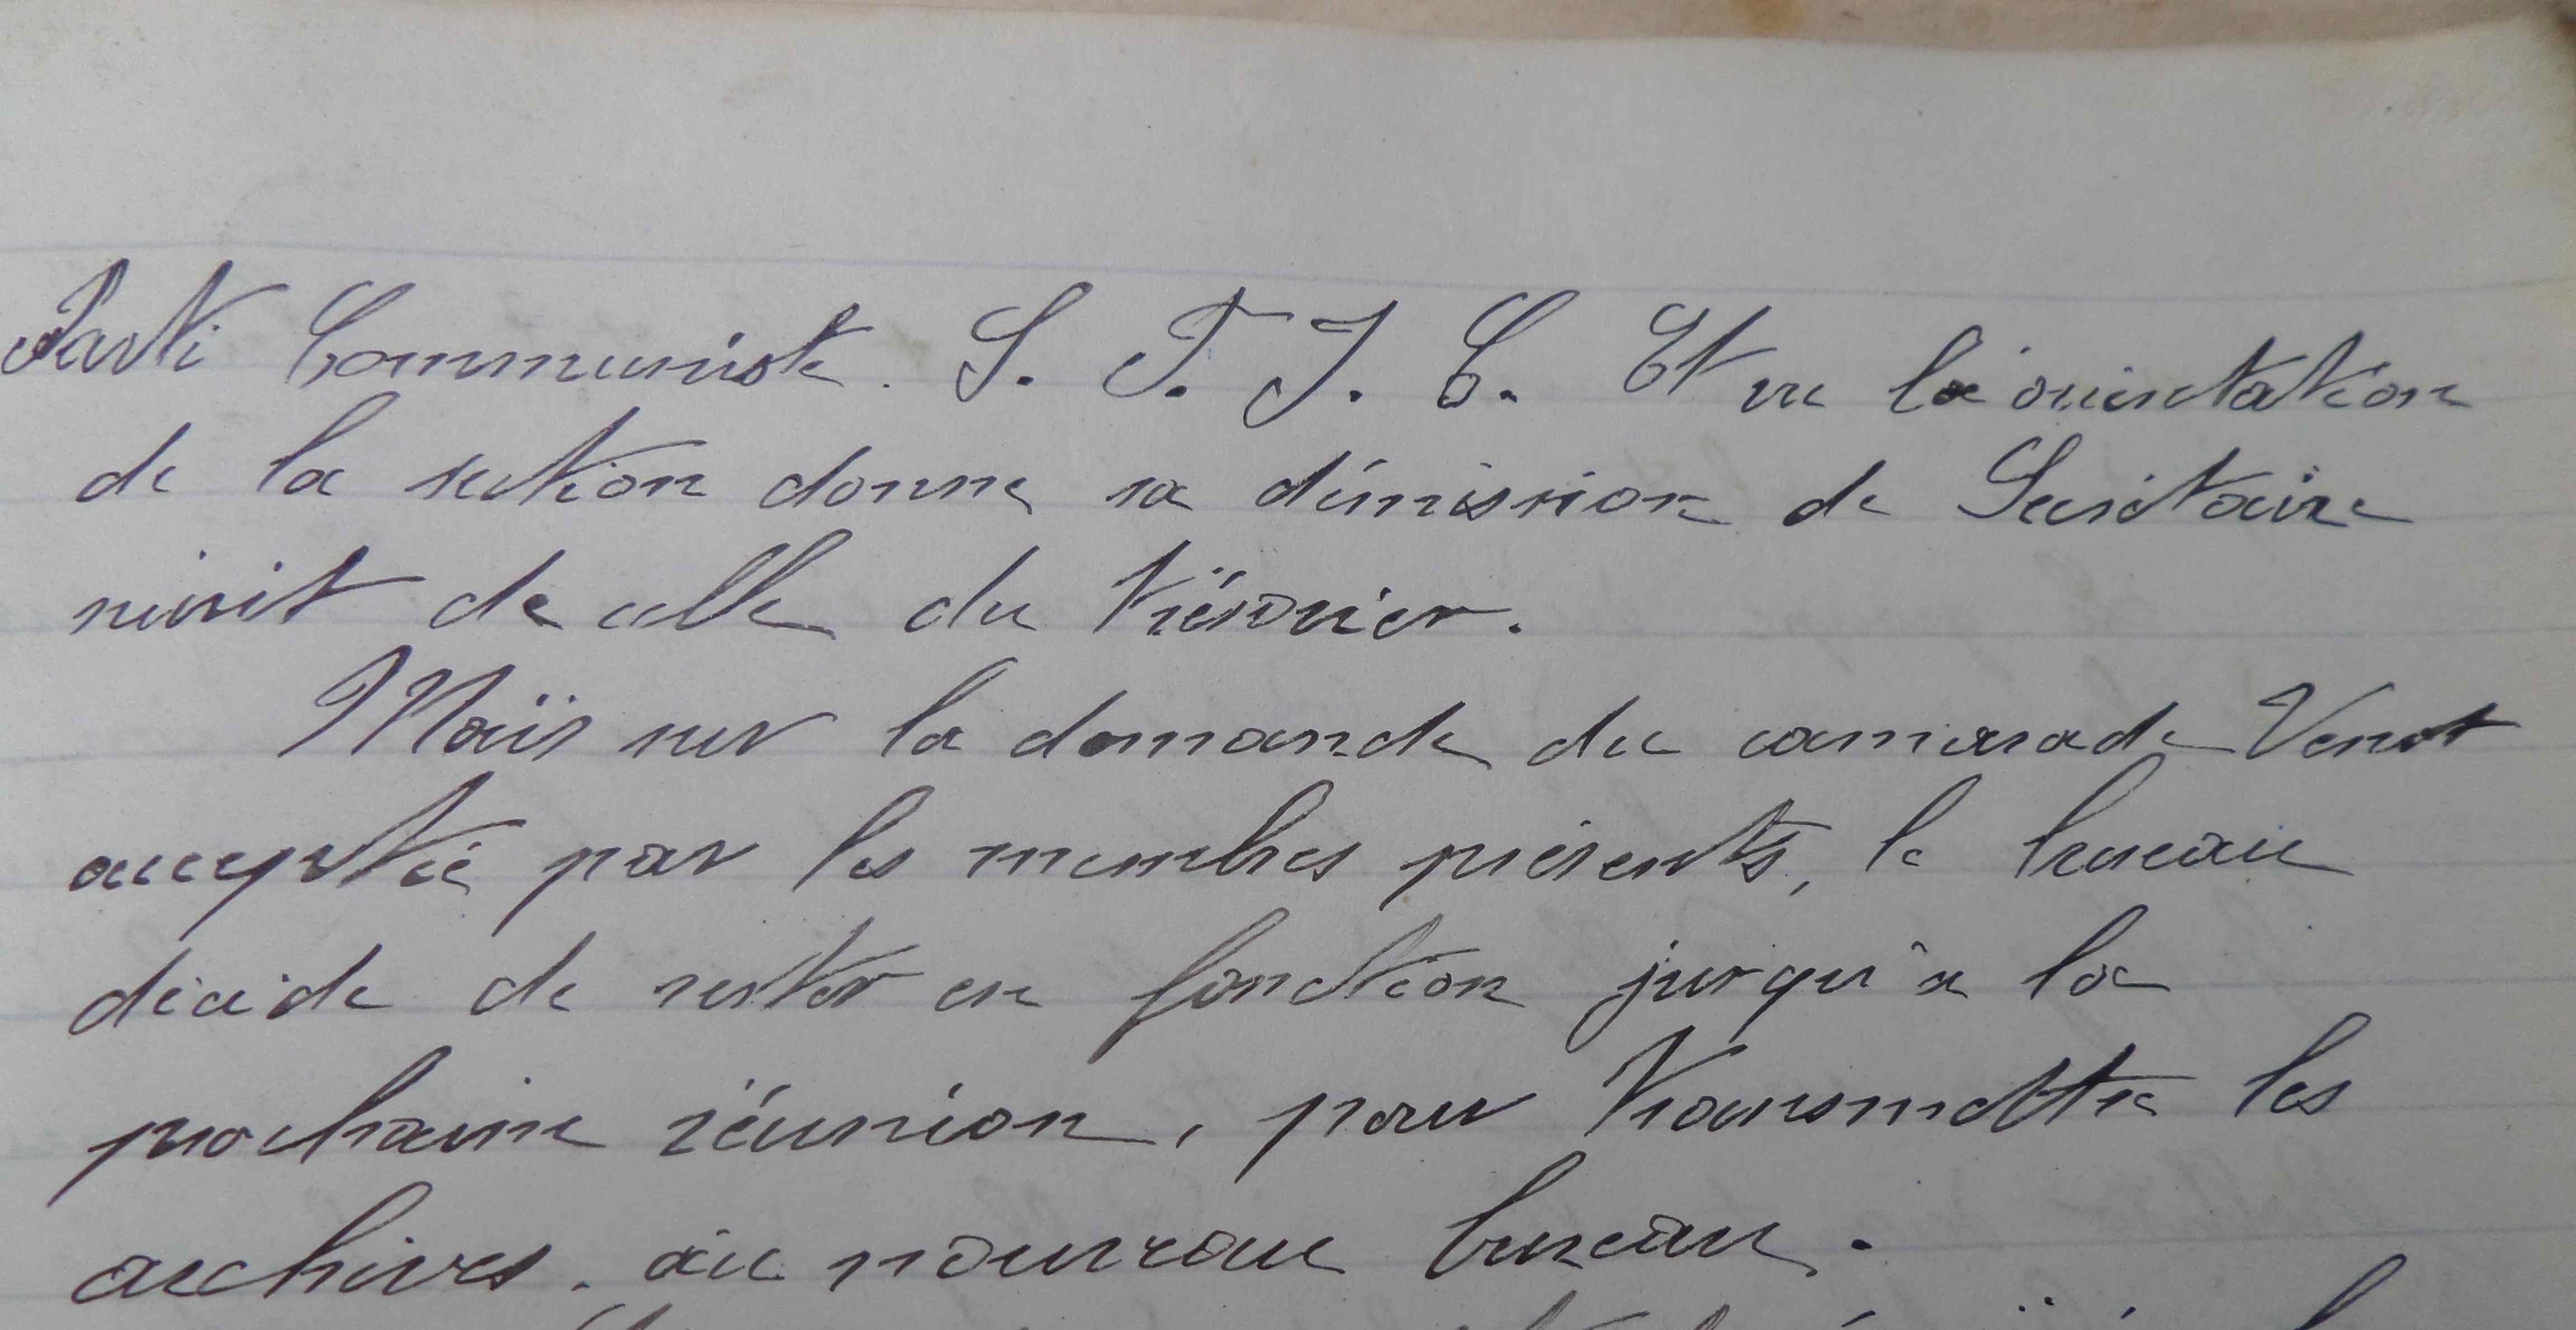 Parti Communiste. S. F. I. C. Et vu la orientation
de la section donne sa démission de Secrétaire
suivit de celle du trésorier.
Mais sur la demande du camarade Venot
acceptée par les membres présents, le bureau
décide de rester en fonction jusqu'à la
prochaine réunion, pour transmettre les
archives. au nouveau bureau.